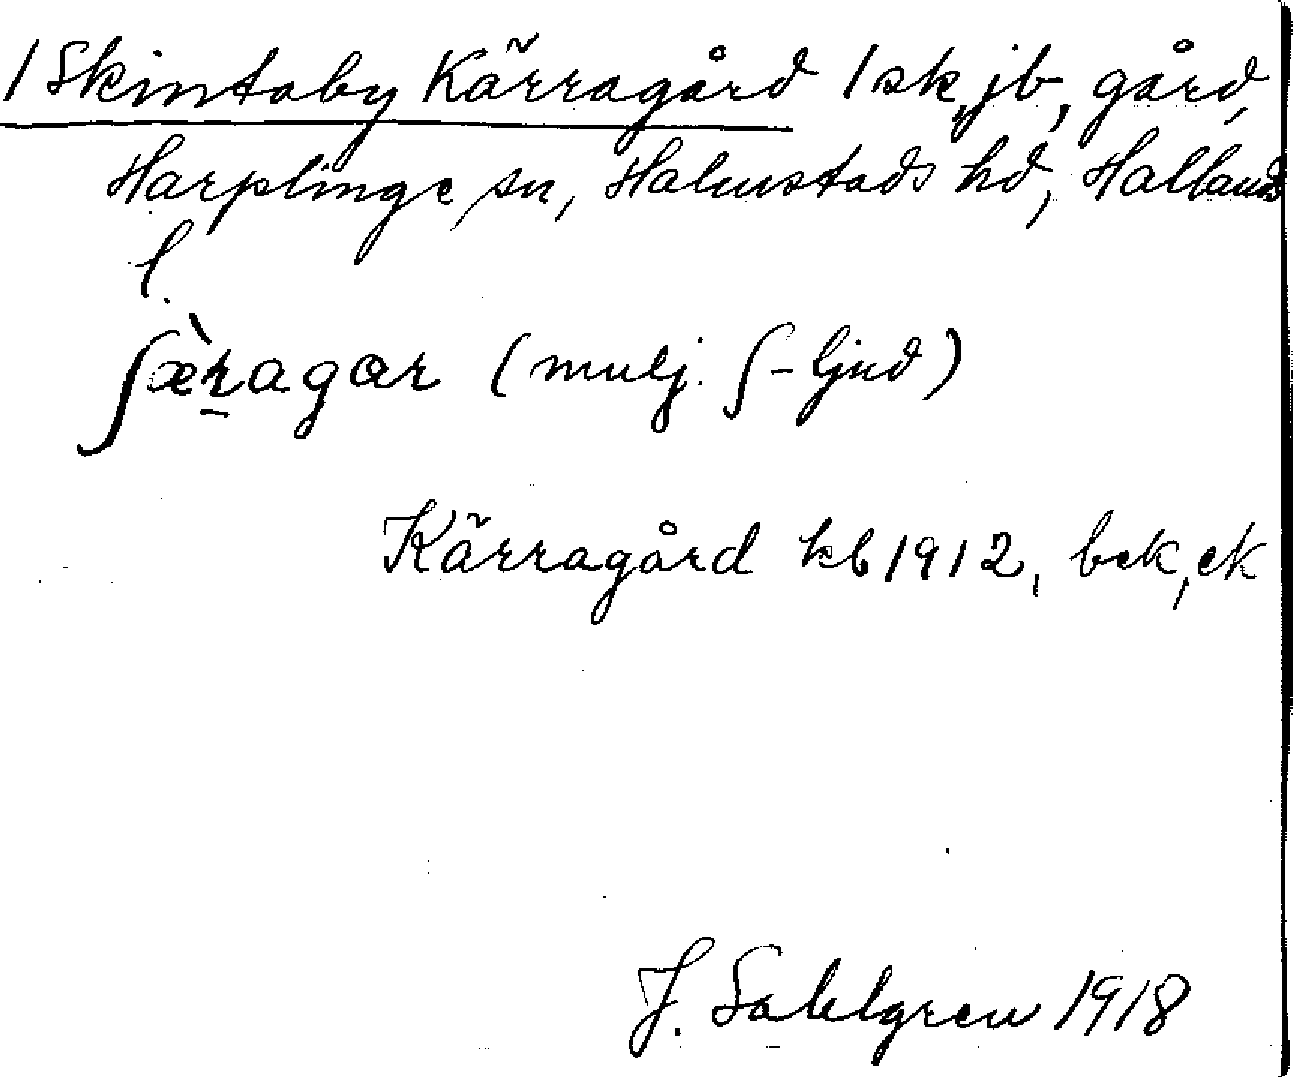 / Skintaby Kärragård / sk, jb, gård,
Harplinge sn, Halmstads hd, Hallands
l.
ʃæ̀ragar (mulj. ʃ-ljud)
Kärragård kb 1912, bek, ek
J. Sahlgren 1918